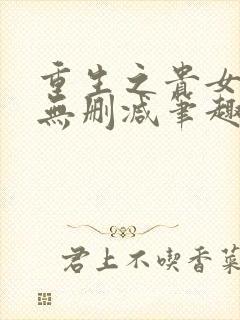 重生之貴女
無刪減筆趣
君上不喫香菜